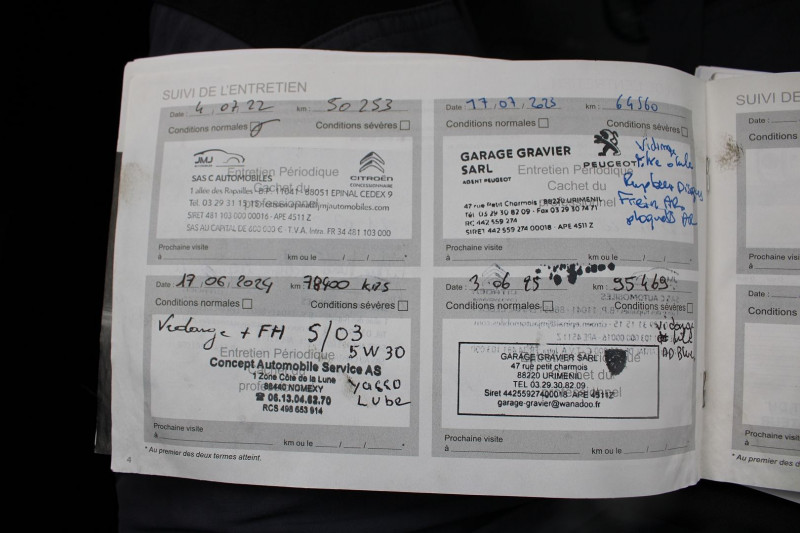 SUIVI DE L'ENTRETIEN
Date : 4.07.22 km : 50 253
Conditions normales Conditions sévères
JMJ AUTOMOBILES
CITROËN
CONCESSIONNAIRE
Entretien Périodique
SAS C AUTOMOBILES
Cachet du
1 allée des Rapailles - B.P. 11041 - 88051 EPINAL CEDEX 9
professionnel
SIRET 481 103 000 00016 - APE 4511 Z
T.V.A. Intra. FR 34 481 103 000
Prochaine visite
à km ou le / / *
Date : 17.07.2023 km : 64560
Conditions normales Conditions sévères
GARAGE GRAVIER
SARL
AGENT PEUGEOT
PEUGEOT
Entretien Périodique
Cachet du
47 rue Petit Charmois 88220 URIMENIL
Tél 03 29 30 82 09 - Fax 03 29 30 74 71
RC 442 559 274
SIRET 442 559 274 00018 - APE 4511 Z
Vidange
Frein AR
plaquett AR
Prochaine visite
à km ou le / / *
Date : 17.06.2024 km 78400 kms
Conditions normales Conditions sévères
Vidange + FH 5/03
5W30
Yacco
Lube
Entretien Périodique
Concept Automobile Service AS
1 Zone Côte de la Lune
88440 NOMEXY
☎ 06.13.04.62.70
RCS 498 653 914
Prochaine visite
à km ou le / / *
Date : 3.06 25 km 95469
Conditions normales Conditions sévères
GARAGE GRAVIER SARL
47 rue petit charmois
88220 URIMENIL
TEL 03.29.30.82.09
Siret 44255927400018 APE 4511Z
garage-gravier@wanadoo.fr
vidange
AD Blue
Prochaine visite
à km ou le / / *
4
* Au premier des deux termes atteint.
SUIVI DE
Date :
Conditions normales
Prochaine visite
à
Date :
Conditions normales
Prochaine visite
à
* Au premier des d